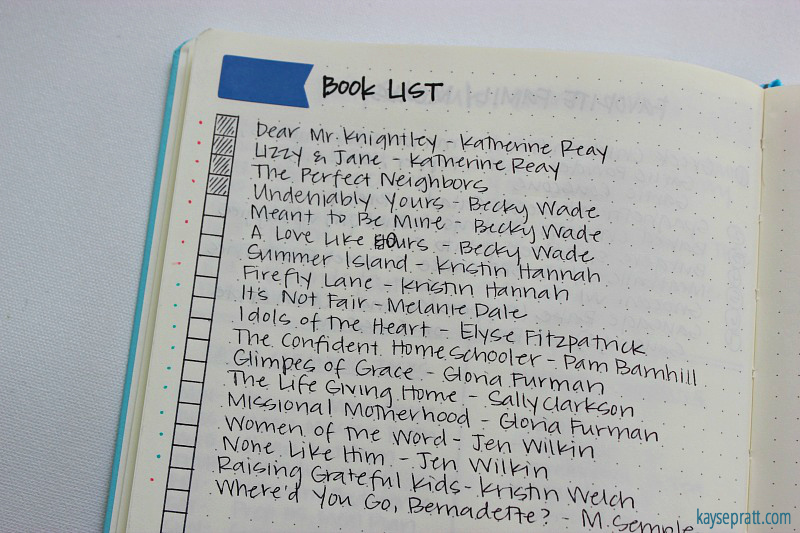 BOOK LIST
Dear Mr. Knightley - Katherine Reay
Lizzy & Jane - Katherine Reay
The Perfect Neighbors
Undeniably Yours - Becky Wade
Meant to Be Mine - Becky Wade
A Love Like Ours - Becky Wade
Summer Island - Kristin Hannah
Firefly Lane - Kristin Hannah
It's Not Fair - Melanie Dale
Idols of the Heart - Elyse Fitzpatrick
The Confident Homeschooler - Pam Barnhill
Glimpses of Grace - Gloria Furman
The Life Giving Home - Sally Clarkson
Missional Motherhood - Gloria Furman
Women of the Word - Jen Wilkin
None Like Him - Jen Wilkin
Raising Grateful Kids - Kristin Welch
Where'd You Go, Bernadette? - M. Semple
kaysepratt.com